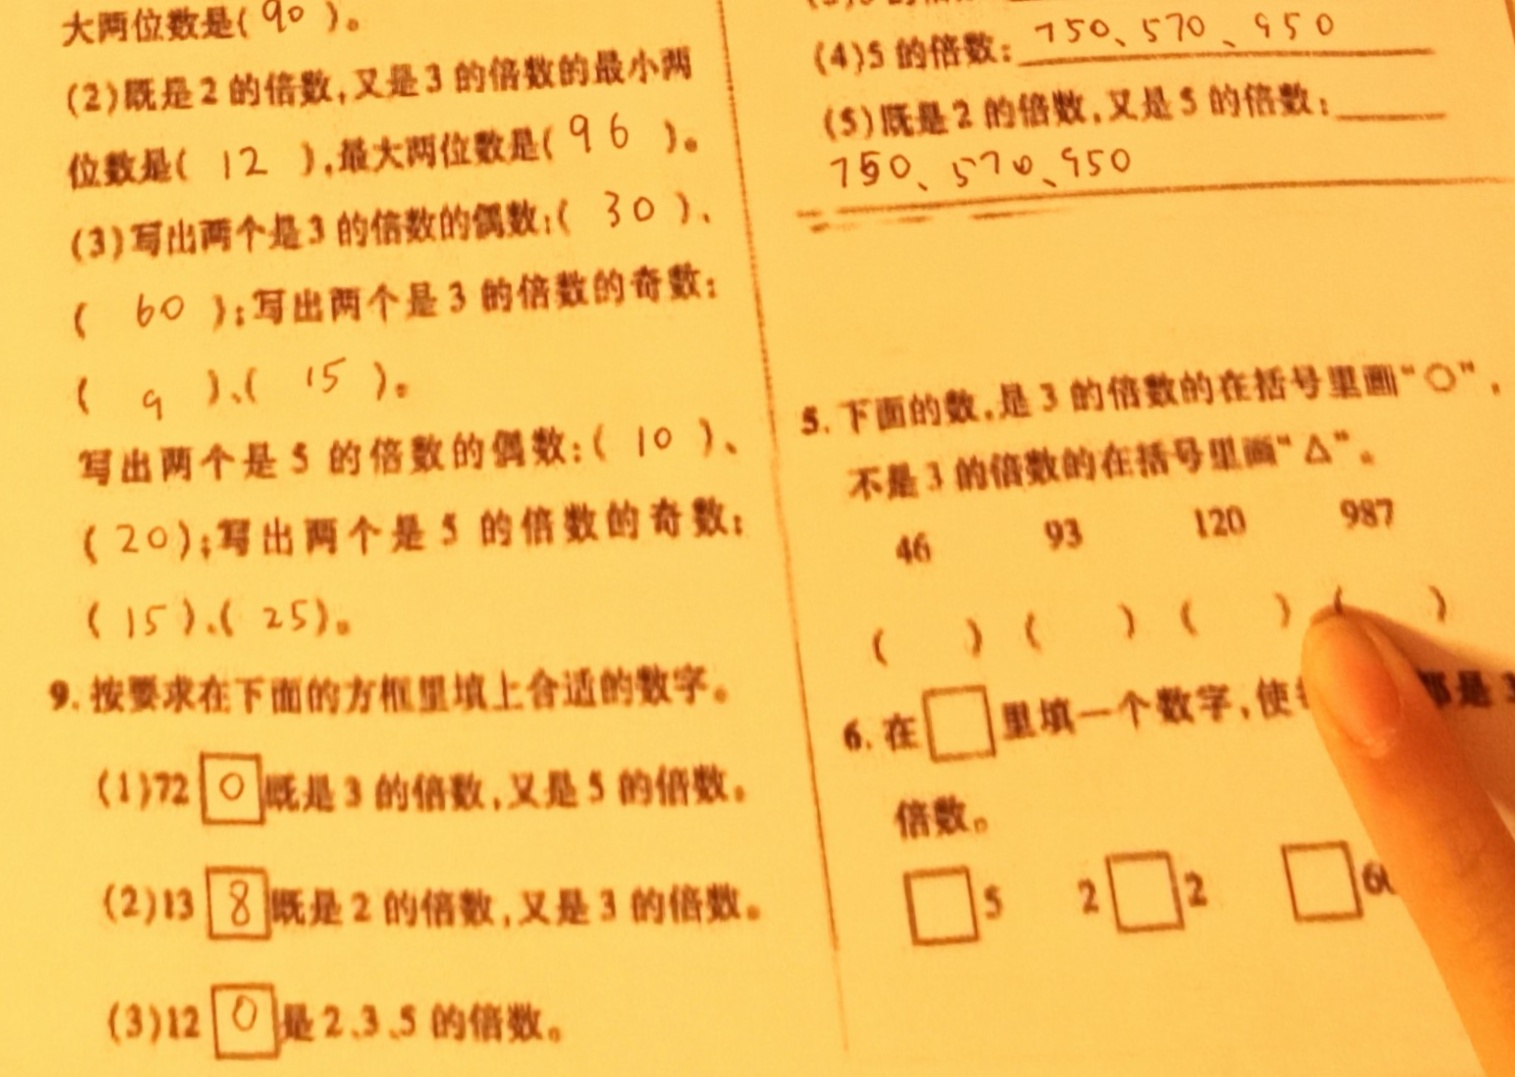 大两位数是( 90 )。
(2)既是2的倍数,又是3的倍数的最小两
位数是( 12 ),最大两位数是( 96 )。
(3)写出两个是3的倍数的偶数:( 30 )、
( 60 );写出两个是3的倍数的奇数:
( 9 )、( 15 )。
写出两个是5的倍数的偶数:( 10 )、
(20);写出两个是5的倍数的奇数:
(15)、(25)。
9. 按要求在下面的方框里填上合适的数字。
(1)72 0 既是3的倍数,又是5的倍数。
(2)13 8 既是2的倍数,又是3的倍数。
(3)12 0 是2、3、5的倍数。
(4)5的倍数: 750、570、950
(5)既是2的倍数,又是5的倍数:
750、570、950
5. 下面的数,是3的倍数的在括号里画“○”,
不是3的倍数的在括号里画“△”。
46 93 120 987
( ) ( ) ( ) ( )
6. 在□里填一个数字,使 都是3
倍数。
□5 2□2 □6